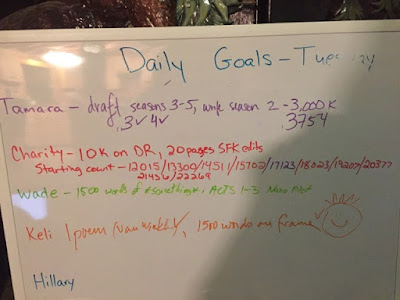 Daily Goals - Tuesday
Tamara - draft seasons 3-5, write season 2 - 3,000 k
3✓ 4✓ 3754
Charity - 10K on DR, 20 pages SFK edits
Starting count - 12015/13309/14511/15702/17123/18023/19207/20377
21436/22269
Wade - 1500 words of #something, ACTS 1-3 Nano
Keli 1 poem ✓, 1500 words on frame
Hillary